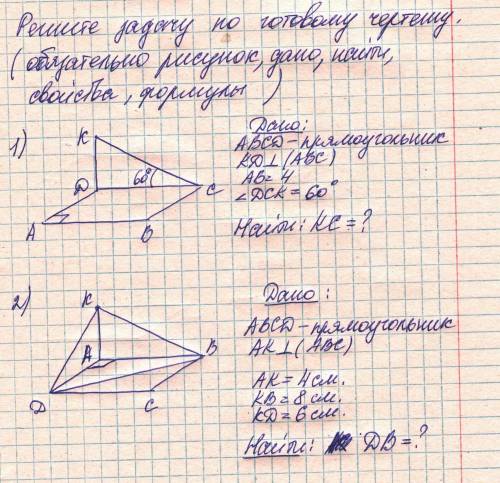 Решите задачу по готовому чертежу.
(обязательно рисунок, дано, найти,
свойства, формулы)
1)
K
D
60°
C
A
B
Дано:
ABCD – прямоугольник
KD ⊥ (ABC)
AB = 4
∠DCK = 60°
Найти: KC = ?
2)
K
A
B
D
C
Дано:
ABCD – прямоугольник
AK ⊥ (ABC)
AK = 4 см.
KB = 8 см.
KD = 6 см.
Найти: DB = ?